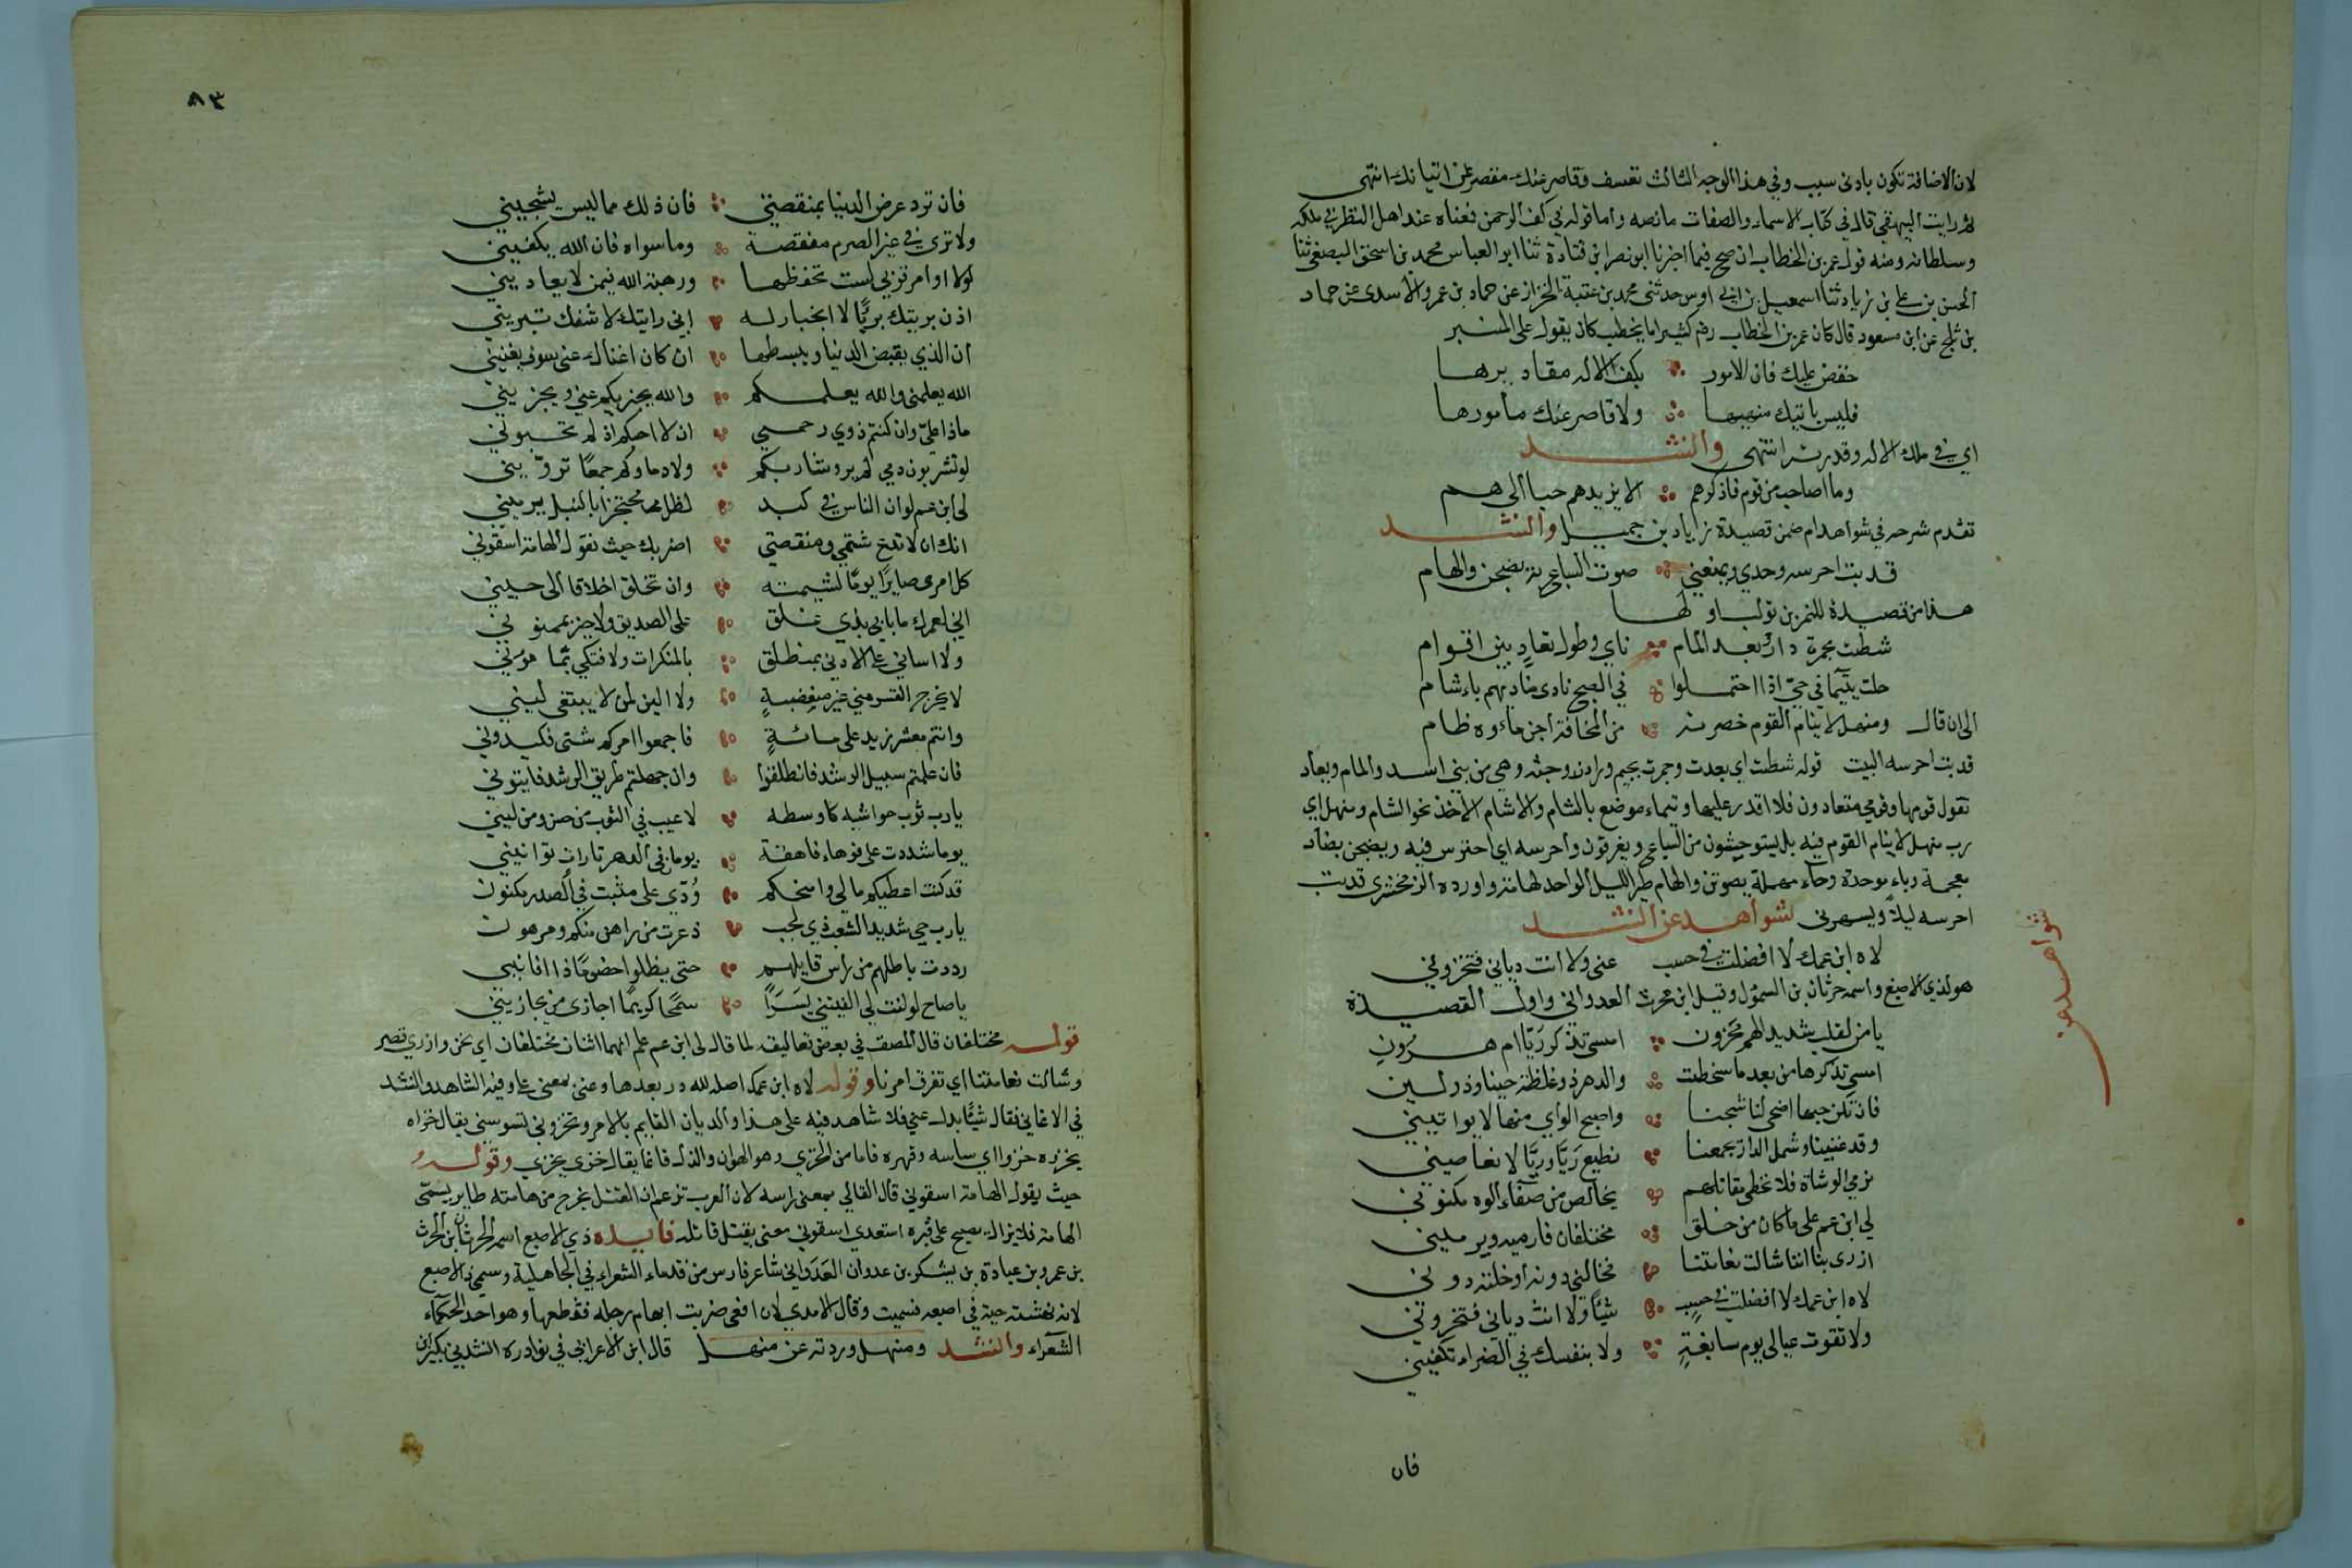 لان الاضافة تكون بادنى سبب وفي هذا الوجه الثالث تعسف وقاصر عنك مقصر عن اتيانك انتهى
ثم رايت البيهقي قال في كتاب الاسماء والصفات ما نصه واما قوله في كف الرحمن فمعناه عند اهل النظر في ملكه
وسلطانه ومنه قول عمر بن الخطاب ان صح فيما اخبرنا ابو نصر ابن قتادة ثنا ابو العباس محمد بن اسحق الصبغي ثنا
الحسن بن علي بن زياد ثنا اسمعيل بن ابي اوس حدثني محمد بن عتبة الخزاز عن حماد بن عمرو الاسدي عن حماد
بن ثلج عن ابن مسعود قال كان عمر بن الخطاب رضه كثيرا ما يخطب كان يقول على المنبر
خفض عليك فان الامور بكف الاله مقاديرها
فليس ياتيك منهيها ولا قاصر عنك مامورها
اي في ملك الاله وقدرته انتهى وانشد
وما اصاحب من قوم فاذكرهم الا يزيدهم حبا الى هم
تقدم شرحه في شواهد ام ضمن قصيدة زياد بن جميل وانشد
قد بت احرسه وحدي ويمنعني صوت السباع به يضبحن والهام
هذا من قصيدة للنمر بن تولب اولها
شطت بجمرة دار بعد المام ناي وطول تعاد بين اقوام
حلت بتيما في حي اذا احتملوا في الصبح نادى مناديهم باءشام
الى ان قال ومنهل لا ينام القوم حضرته من المخافة اجن ماءوه ظام
قد بت احرسه البيت قوله شطت اي بعدت وجمرت بجيم وراء زوجته وهي من بني اسد والمام وبعاد
تقول قومها وقومي متعادون فلا اقدر عليها وتيماء موضع بالشام والاشام الاخذ نحو الشام ومنهل اي
رب منهل لا ينام القوم فيه بل يستوحشون من السباع ويغرقون واحرسه اي احترس فيه ويضبحن بضاد
معجمة وباء موحدة وحاء مهملة يصوتن والهام طير الليل الواحد لهامة واورده الزمخشري قد بت
احرسه ليلا ويسهرني شواهد عن انشد
شواهد عن
لاه ابن عمك لا افضلت في حسب عني ولا انت دياني فتخزوني
هو لذي الاصبع واسمه حرثان بن السموال وقيل ابن محرث العدواني واول القصيدة
يا من لقلب شديد الهم محزون امسى تذكر ريا ام هرون
امسى تذكرها من بعد ما شحطت والدهر ذو غلظة حينا وذو لين
فان تكن حبها اضحى لنا شجنا واصبح الواي منها لا يواتيني
وقد غنينا وشمل الدار يجمعنا نطيع ريا وريا لا تعاصيني
نرمي الوشاة فلا نخطى مقاتلهم بخالص من صفاء الود مكنون
لي ابن عم على ما كان من خلق مختلفان فارميه ويرميني
ازرى بنا اننا شالت نعامتنا فخالني دونه او خلته دوني
لاه ابن عمك لا افضلت في حسب شيئا ولا انت دياني فتخزوني
ولا تقوت عيالي يوم سابغة ولا بنفسك في الضراء تكفيني
فان
٨٣
فان ترد عرض الدنيا بمنقصتي فان ذلك مما ليس يشجيني
ولا ترى في غير الصرم منقصة وما سواه فان الله يكفيني
لولا اوامر تربي لست تحفظها ورهبة الله فيمن لا يعاديني
اذن بريتك بريا لا انجبار له اني رايتك لا تنفك تبريني
ان الذي يقبض الدنيا ويبسطها ان كان اغناك عني سوف يغنيني
الله يعلمني والله يعلمكم والله يجزيكم عني ويجزيني
ماذا علي وان كنتم ذوي رحمي ان لا احبكم اذ لم تحبوني
لو تشربون دمي لم يرو شاربكم ولا دماوكم جمعا ترويني
لي ابن عم لو ان الناس في كبد لظل محتجزا بالنبل يرميني
انك ان لا تدع شتمي ومنقصتي اضربك حيث تقول الهامة اسقوني
كل امرى صاير يوما لشيمته وان تخلق اخلاقا الى حين
اني لعمرك ما بابي بذي غلق على الصديق ولا خيري بممنون
ولا لساني على الادنى بمنطلق بالمنكرات ولا فتكي بمامون
لا يخرج القسر مني غير مغضبة ولا الين لمن لا يبتغي ليني
وانتم معشر زيد على مائة فاجمعوا امركم شتى فكيدوني
فان علمتم سبيل الرشد فانطلقوا وان جهلتم طريق الرشد فايتوني
يا رب ثوب حواشيه كاوسطه لا عيب في الثوب من حسن ومن لين
يوما شددت على فوهاء فاهقة يوما من الدهر تارات تواتيني
قد كنت اعطيكم مالي وامنحكم ودي على مثبت في الصدر مكنون
يا رب حي شديد الشغب ذي لجب ذعرت من راهن منكم ومرهون
رددت باطلهم من راس قايلهم حتى يظلوا خصوما ذا افانين
يا صاح لو لنت لي الفيتني يسرا سمحا كريما اجازي من يجازيني
قوله مختلفان قال المصنف في بعض تعاليقه لما قال لي ابن عم علم انهما اثنان مختلفان اي نحن وازري قصر
وشالت نعامتنا اي تفرق امرنا وقوله لاه ابن عمك اصله لله در بعدها وعني بمعنى علي وفيه الشاهد وانشد
في الاغاني فقال شيئا بدل عني فلا شاهد فيه على هذا والديان القايم بالامر وتخزوني تسوسني يقال خزاه
يخزوه خزوا اي ساسه وقهره فاما من الخزي وهو الهوان والذل فانما يقال خزى يخزي وقوله و
حيث يقول الهامة اسقوني قال القالي بمعنى راسه لان العرب تزعم ان القتل يخرج من هامته طاير يسمى
الهامة فلا يزال يصيح على قبره استعدى اسقوني معنى يقتل قاتله فايده ذي الاصبع اسمه الحرثان ابن الحرث
بن عمرو بن عبادة بن يشكر بن عدوان العدواني شاعر فارس من قدماء الشعراء في الجاهلية وسمى ذا الاصبع
لانه نهشته حية في اصبعه فسميت وقال الامدي لان افعى ضربت ابهام رجله فقطعها وهو احد الحكماء
الشعراء وانشد ومنهل وردته عن منهل قال ابن الاعرابي في نوادره انشدني بكير بن